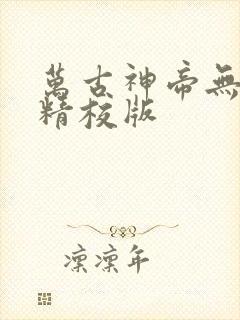 萬古神帝無
精校版
凛凛年